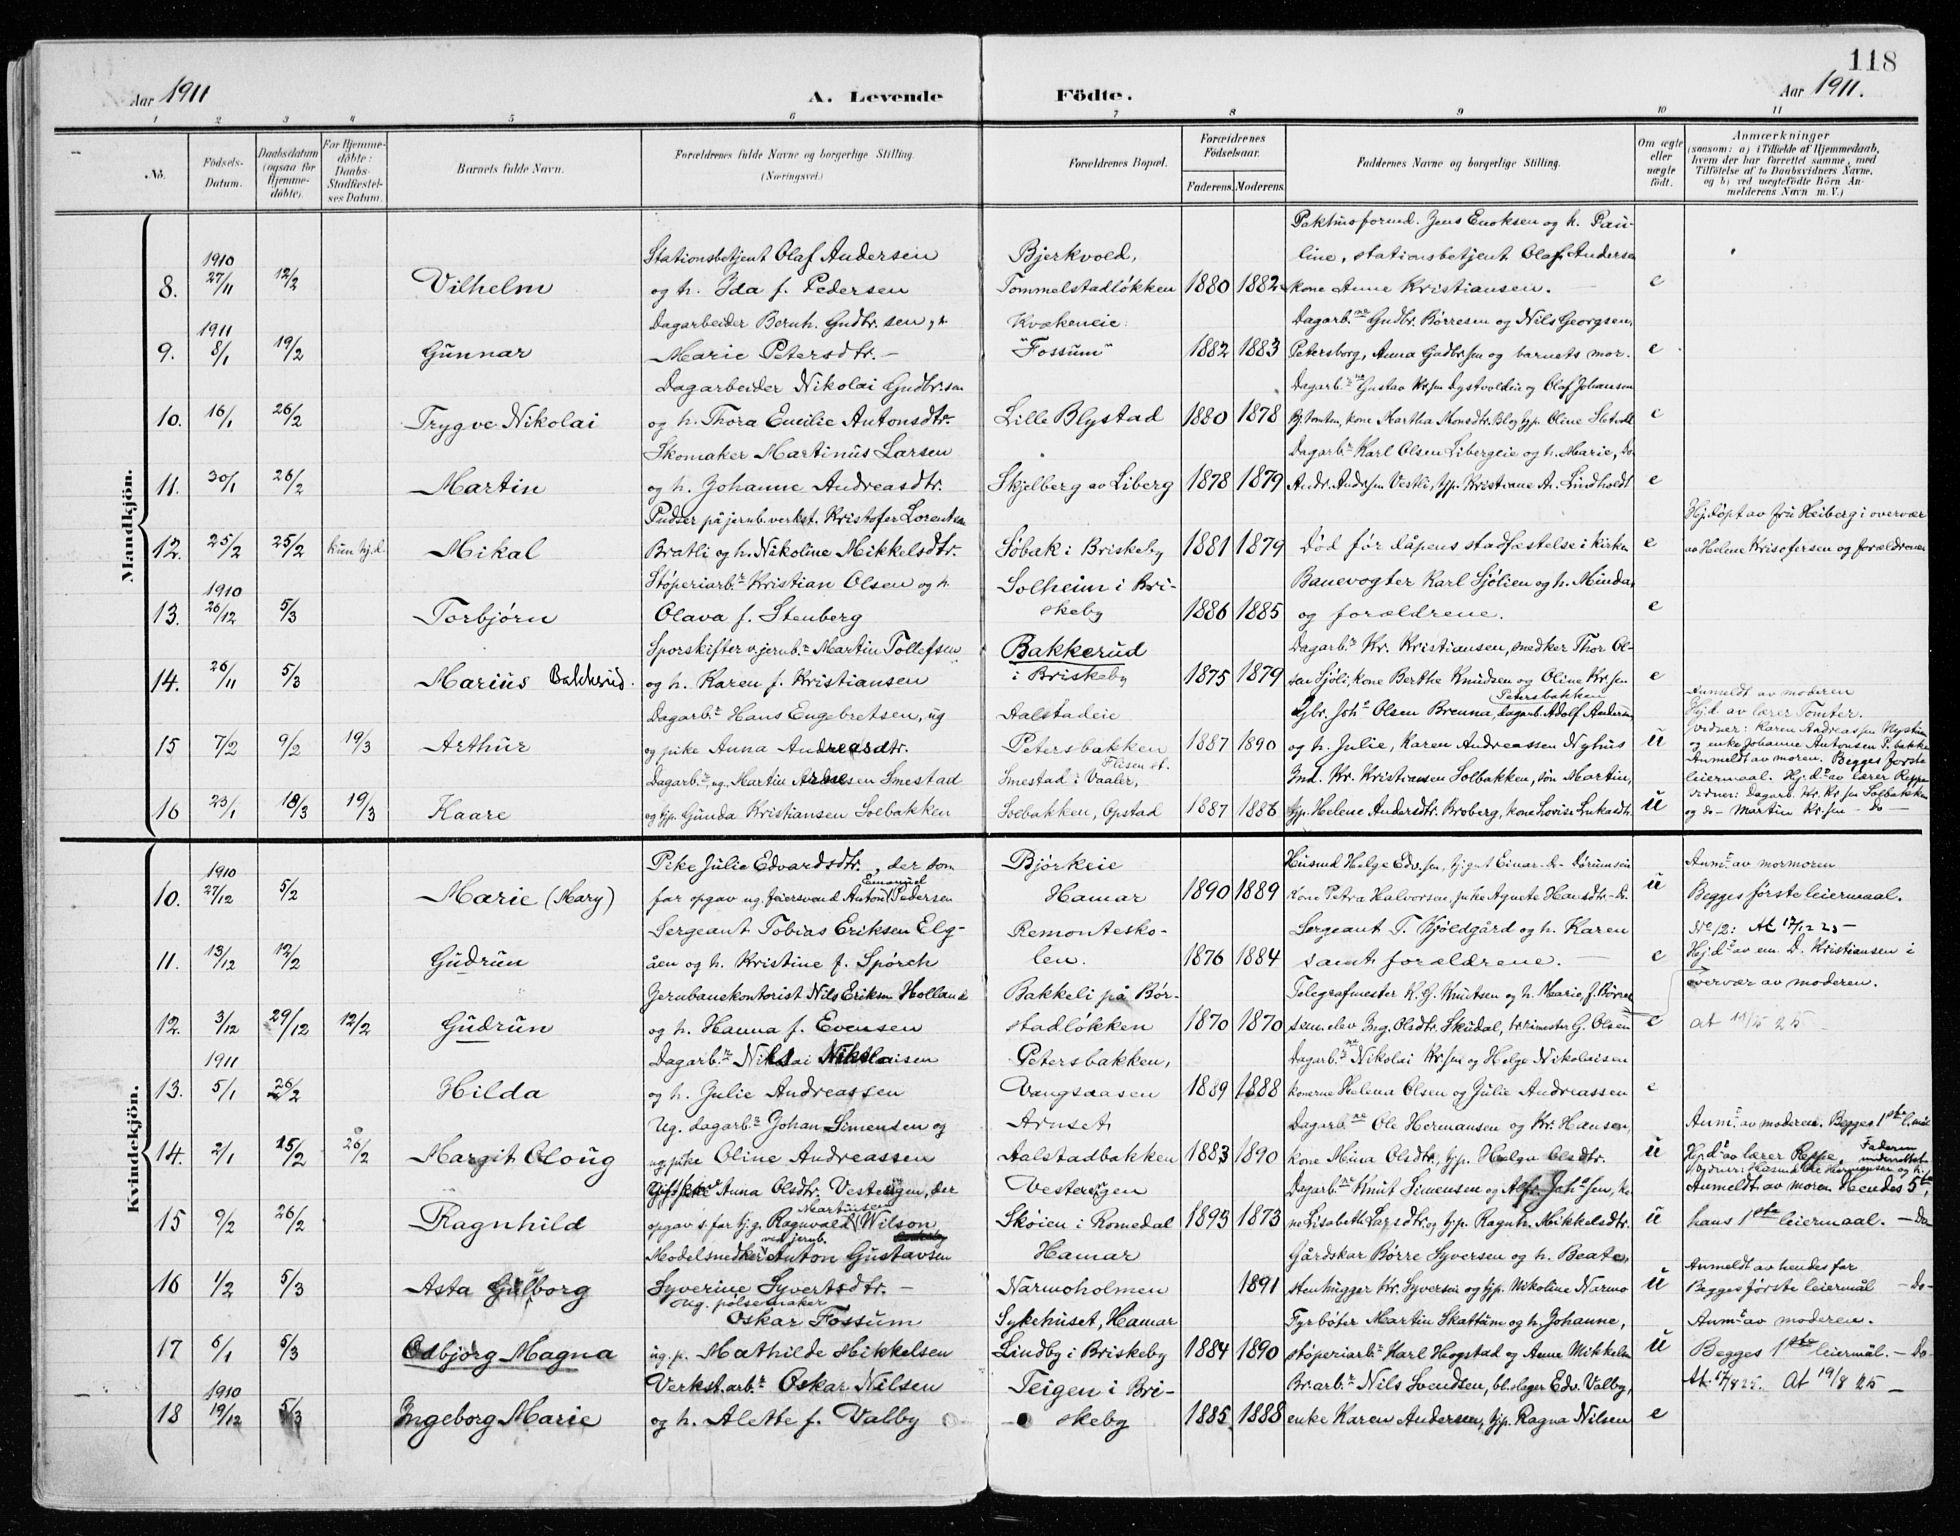 118
Aar 1911
A. Levende Födte.
Aar 1911.
1 2 3 4 5 6 7 8 9 10 11
No.
Födsels-Datum.
Daabsdatum (ogsaa for Hjemmedöbte).
For Hjemmedöbte: Daabs-Stadfæstelses Datum.
Barnets fulde Navn.
Forældrenes fulde Navne og borgerlige Stilling. (Næringsvei.)
Forældrenes Bopæl.
Forældrenes Födselsaar.
Faderens. Moderens.
Faddernes Navne og borgerlige Stilling.
Om ægte eller uægte födt.
Anmærkninger
(saasom: a) i Tilfælde af Hjemmedaab, hvem der har forrettet samme, med Tilföielse af to Daabsvidners Navne, og b) ved uægtefödte Börn Anmelderens Navn m. V.)
Mandkjön.
Paktusformd. Jens Enoksen og h. Pau-
1910 Stationsbetjent Olaf Andersen Bjerkvold, line, stationsbetjent Olaf Andersen
8. 27/11 12/2 Vilhelm og h. Ida f. Pedersen Tommelstadløkken 1880 1882 kone Anne Kristiansen. e
1911 Dagarbeider Bernh. Gudbr.sen, h. Kvækeneie: Dagarb.ne Gudbr. Børresen og Nils Georgsen,
9. 8/1 19/2 Gunnar Marie Petersdtr. "Fossum" 1882 1883 Petersborg, Anna Gudbr.sen og barnets mor. e
Dagarbeider Nikolai Gudbr.sen Dagarb.ne Gustav Kr.sen Dystvoldeie og Olaf Johansen
10. 16/1 26/2 Trygve Nikolai og h. Thora Emilie Antonsdtr. Lille Blystad 1880 1878 Bj.tomten, kone Martha Monsdtr. Bly, tjp. Oline Sletvold e
Skomaker Martinus Larsen Dagarb.r Karl Olsen Libergeie og h. Marie, Do
11. 30/1 26/2 Martin og h. Johanne Andreasdtr. Skjelberg av Liberg 1878 1879 Andr. Andr.sen Vestli, tjp. Kristiane A. Lindholdt e
Pudser på jernb.verkst. Kristofer Lorentsen Hj.døpt av fru Heiberg i overvær
12. 25/2 25/2 kun hj.d. Mikal Bratli og h. Nikoline Mikkelsdtr. Søbak i Briskeby 1881 1879 Død før dåpens stadfæstelse i kirken e av Helene Krisofersen og forældrene
1910 Støperiarb.r Kristian Olsen og h. Solheim i Bri- Banevogter Karl Sjølien og h. Minda,
13. 26/12 5/3 Torbjørn Olava f. Stenberg skeby 1886 1885 og forældrene. e
Sporskifter v. jernb.n Martin Tollefsen Bakkerud Dagarb.r Kr. Kristiansen, snedker Thor Ol-
14. 26/11 5/3 Marius Bakkerud. og h. Karen f. Kristiansen i Briskeby 1875 1879 sen Sjøli, kone Berthe Knudsen og Oline Kr.sen e
Petersbakken
Dagarb.r Hans Engebretsen, ug Aalstadeie Gbr. Joh.s Olsen Brenna, dagarb. Adolf Andersen Anmeldt av moderen
Hj.d. av lærer Tomter.
15 7/2 9/2 19/3 Arthur og pike Anna Andreasdtr. Petersbakken 1887 1890 og h. Julie, Karen Andreassen Nyhus u vidner: Karen Andreassen Nystuen
og enke Johanne Antonsen P.bakken
Flisen st.
Dagarb.r ug. Martin Arnesen Smestad Smestad i Vaaler, Ind. Kr. Kristiansen Solbakken, søn Martin, Anmeldt av moren. Begges første
leiermaal. Hj.d. av lærer Reppe
16 23/1 18/3 19/3 Kaare og tjp. Gunda Kristiansen Solbakken Solbakken, Opstad 1887 1886 tjp. Helene Andersdtr. Broberg, kone Lovise Lukasdtr. u vidner: Dagarb. Kr. Kr.sen Solbakken
og do Martin Kr.sen do
Kvindekjön.
1910 Pike Julie Edvardsdtr., der som Bjørkeie Husmd Helge Edv.sen, tj.gut Einar Do Dørumseie Anm.t av mormoren
Emanuel
10. 27/12 5/2 Marie (Mary) far opgav ug. feiersvend Anton Pedersen Hamar 1890 1889 kone Petra Halvorsen, pike Agnete Hansdtr. Do. u Begges første leiermaal.
Sergeant Tobias Eriksen Elg- Remontesko- Sergeant T. Kjöldgård og h. Karen No 12: At 17/12 23
11. 13/12 12/2 Gudrun åen og h. Kristine f. Spörch len. 1876 1884 samt forældrene. e Hj.d. av em. D. Kristiansen i
Jernbanekontorist Nils Eriksen Holland Bakkeli på Bør- Telegrafmester K. G. Knutsen og h. Marie f. Börre overvær av moderen.
12. 3/12 29/12 12/2 Gudrun og h. Hanna f. Evensen stadløkken 1870 1870 sem.elev Ing. Olsdtr. Skudal, G. Olsen e at 19/5 25
1911 Dagarb.r Nikolai Nikolaisen Petersbakken, Dagarb.ne Nikolai Kr.sen og Helge Nikolaisen
13. 5/1 26/2 Hilda og h. Julie Andreassen Vangsaasen 1889 1888 konerne Helena Olsen og Julie Andreassen e
Ug. dagarb.r Johan Simensen og Arnset Dagarb.ne Ole Hermansen og Kr. Hansen, Anm.t av moderen. Begges 1ste l.mål
14. 2/1 15/2 26/2 Margit Oloug ug pike Oline Andreassen Aalstadbakken 1883 1890 kone Mina Olsdtr., tjp. Helga Olsdtr. u Hj.d. av lærer Reppe, Faderen underrettet
Vidner: Husmd Ole Hermansen og h.
Gift Anna Olsdtr. Vesterengen, der Vesterengen Dagarb.ne Knut Simensen og Alfr. Joh.sen, ko- Anmeldt av moren Hendes 5te,
Martinsen
15 9/2 26/2 Ragnhild opgav s. far tj.g. Ragnvald Wilson Skøien i Romedal 1893 1873 ne Lisabeth Larsdtr. og tjp. Ragnh. Mikkelsdtr. u hans 1ste leiermaal. Do
ved jernb.
Modelsnedker Anton Gustavsen Hamar Gårdskar Børre Syversen og h. Beate, Anmeldt av hendes far
16 1/2 5/3 Asta Gulborg Syverine Syvertsdtr. Narmoholmen 1891 stenhugger Kr. Syversen og tjp. Nikoline Narmo u Begges første leiermål Do
ug. pølsemaker
Oskar Fossum Sykehuset, Hamar Fyrbøter Martin Skattum og h. Johanne, Anm.t av moderen.
17 6/1 5/3 Odbjørg Magna ug. p. Mathilde Mikkelsen Lindby i Briskeby 1884 1890 støperiarb.r Karl Hogstad og Anne Mikkelsen u Begges 1ste leiermål. Do
1910 Verkst.arb.r Oskar Nilsen Teigen i Bri- Br.arb.r Nils Svendsen, bl.slager Edv. Valby, At. 17/8 25. At 19/8 25
18 19/12 5/3 Ingeborg Marie og h. Alette f. Valby skeby 1885 1888 enke Karen Andersen, tjp. Ragna Nilsen e